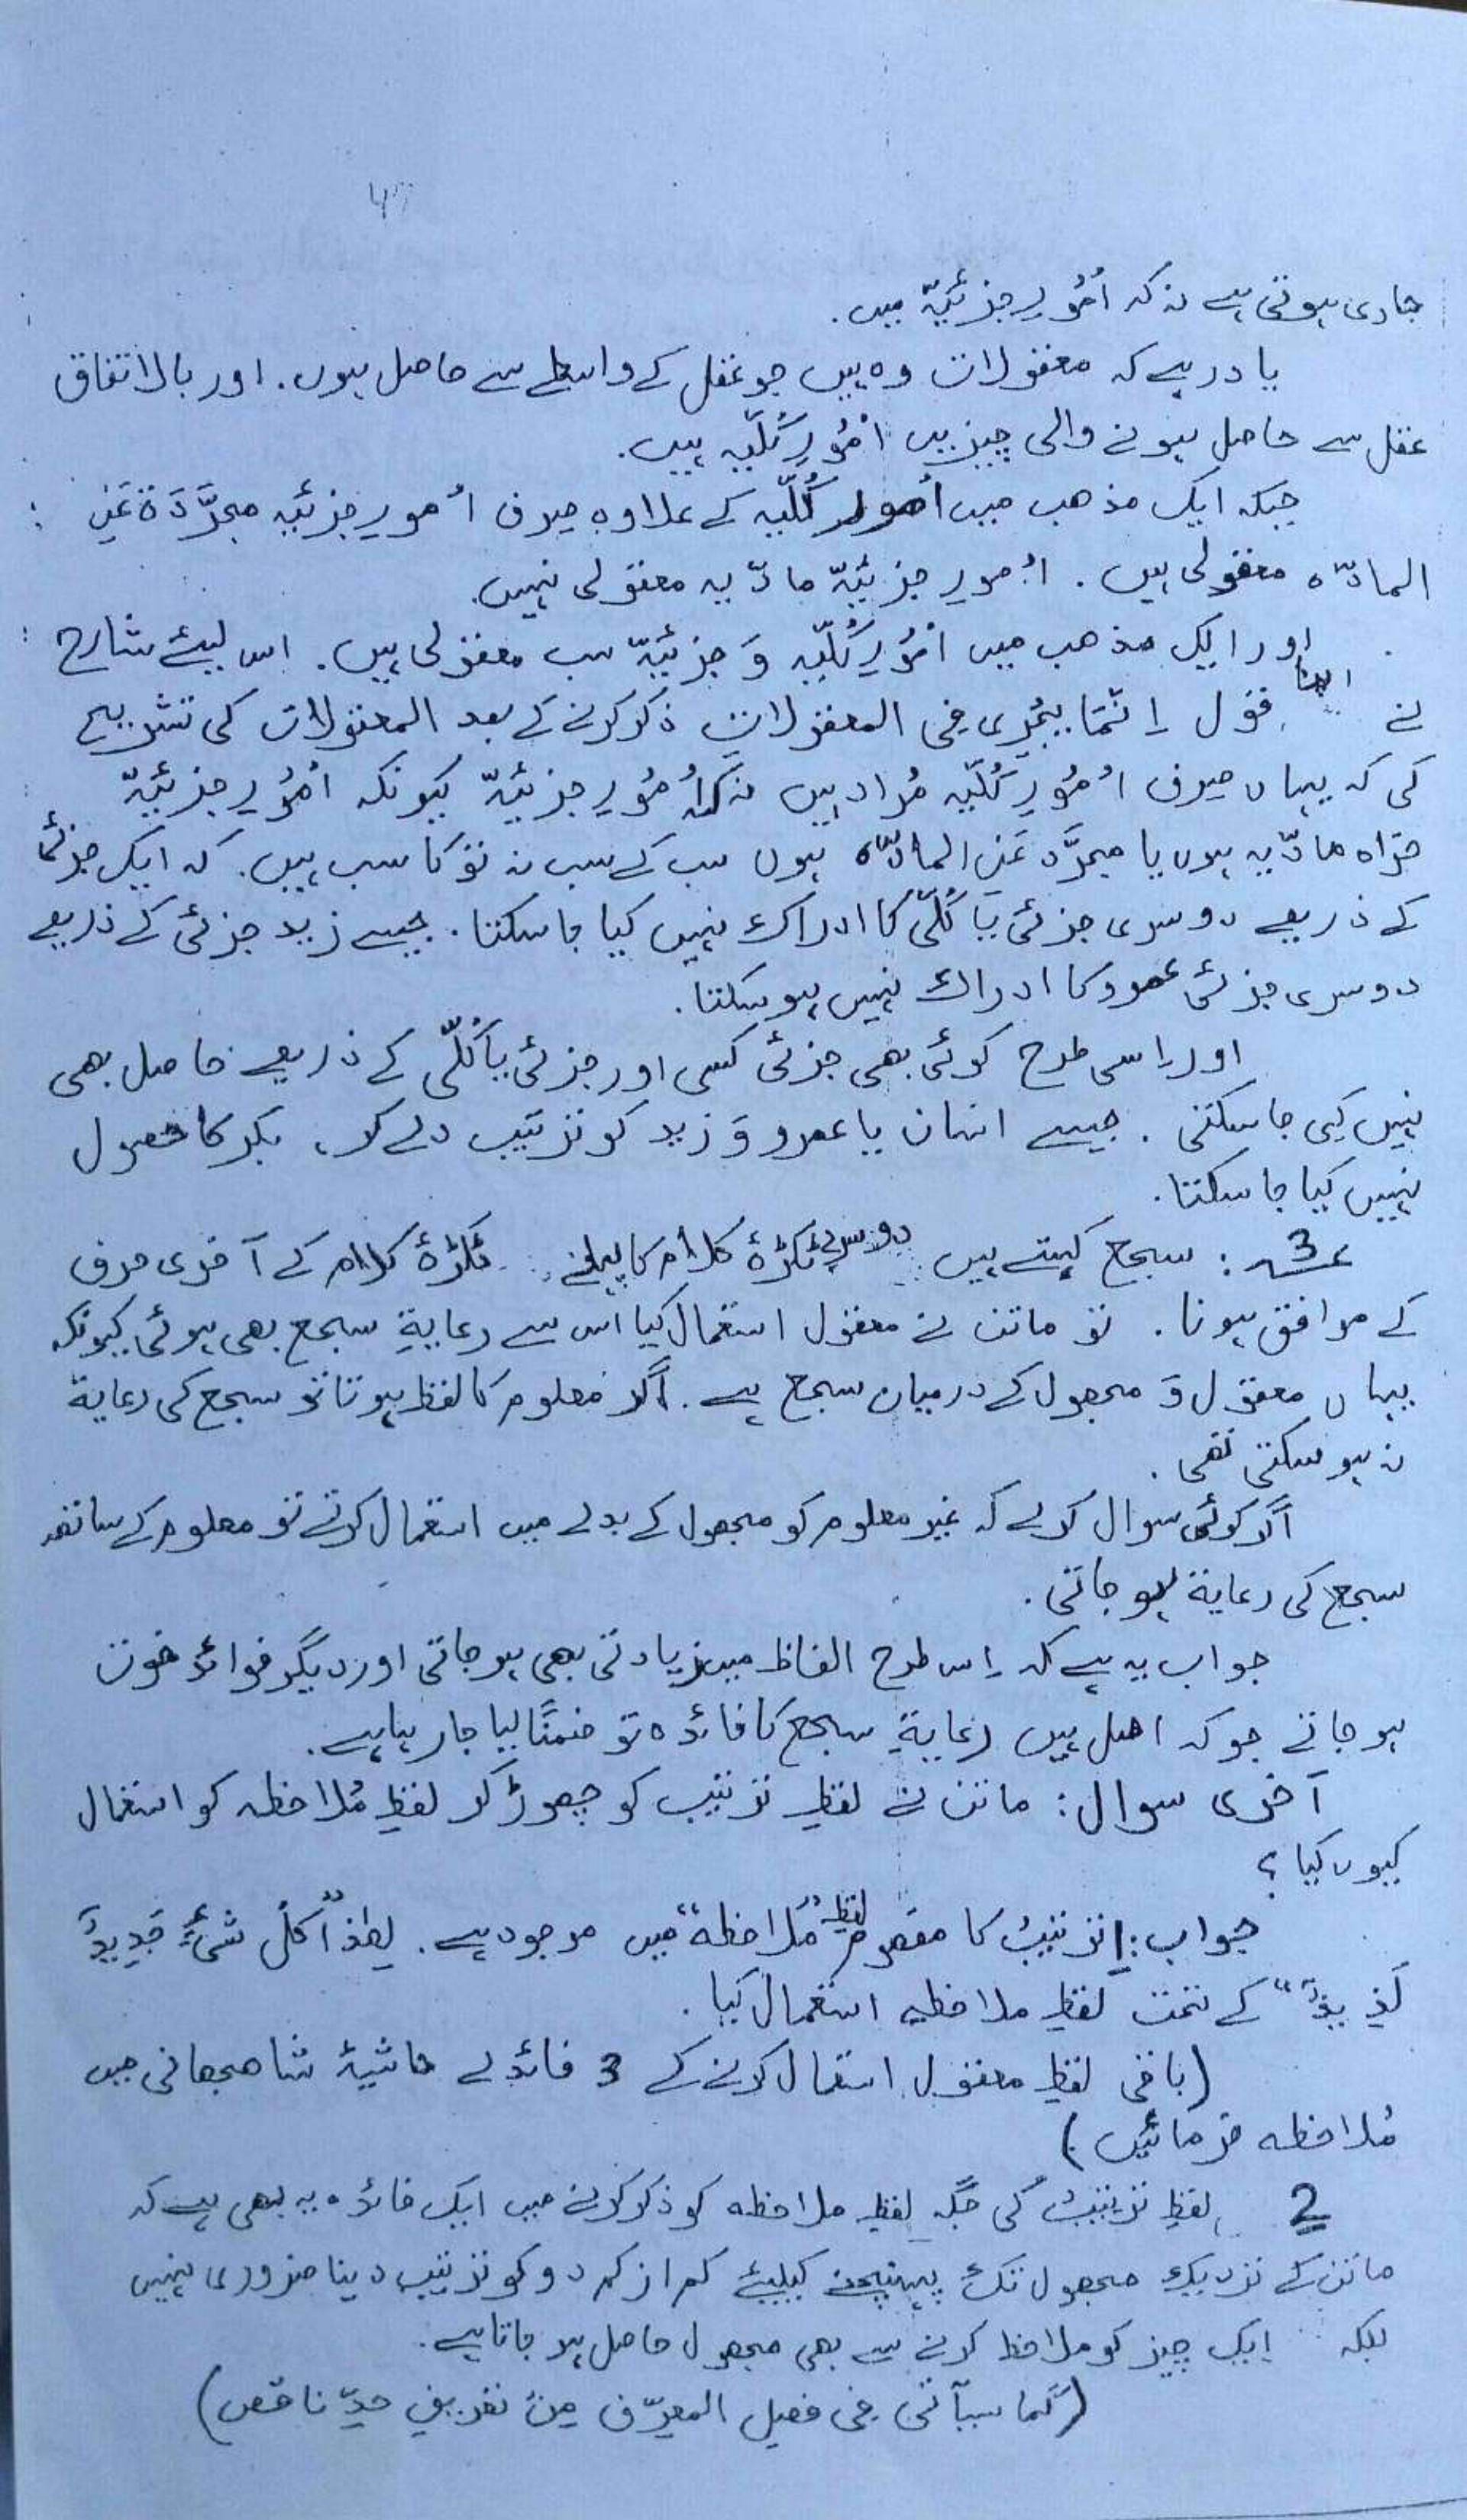 جاری ہوتی ہے نہ کہ اُمُورِ جزئیّہ میں.
یاد رہے کہ معقولات وہ ہیں جو عقل کے واسطے سے حاصل ہوں. اور بالاتفاق
عقل سے حاصل ہونے والی چیزیں اُمُورِ کُلّیہ ہیں.
جبکہ ایک مذھب میں اُمورِ کُلّیہ کے علاوہ صرف اُمورِ جزئیہ مجرَّدَۃ عَنِ
المادّہ معقولی ہیں. اُمورِ جزئیّہ مادّیہ معقولی نہیں.
اور ایک مذھب میں اُمُورِ کُلّیّہ وَ جزئیّہ سب معقولی ہیں. اس لیئے شارح
نے اپنا قول اِنّما یَجْرِی فِی المعقولاتِ ذکر کرنے کے بعد المعقولات کی تشریح
کی کہ یہاں صرف اُمُورِ کُلّیّہ مُراد ہیں نہ کہ اُمُورِ جزئیّہ کیونکہ اُمُورِ جزئیّہ
خواہ مادّیہ ہوں یا مجرَّد عَنِ المادّہ ہوں سب کے سب نہ تو کاسب ہیں. کہ ایک جزئی
کے ذریعے دوسری جزئی یا کُلّی کا ادراک نہیں کیا جا سکتا. جیسے زید جزئی کے ذریعے
دوسری جزئی عمرو کا ادراک نہیں ہو سکتا.
اور اِسی طرح کوئی بھی جزئی کسی اور جزئی یا کُلّی کے ذریعے حاصل بھی
نہیں کی جا سکتی. جیسے انسان یا عمرو وَ زید کو ترتیب دے کر، بکر کا حصول
نہیں کیا جا سکتا.
3: سجع کہتے ہیں دوسرے ٹکڑۂ کلام کا پہلے ٹکڑۂ کلام کے آخری حرف
کے موافق ہونا. تو ماتن نے معقول استعمال کیا اس سے رعایۃِ سجع بھی ہوئی کیونکہ
یہاں معقول وَ مجھول کے درمیان سجع ہے. اگر معلوم کا لفظ ہوتا تو سجع کی رعایۃ
نہ ہو سکتی تھی.
اگر کوئی سوال کرے کہ غیر معلوم کو مجھول کے بدلے میں استعمال کرتے تو معلوم کے ساتھ
سجع کی رعایۃ ہو جاتی.
جواب یہ ہے کہ اِس طرح الفاظ میں زیادتی بھی ہو جاتی اور دیگر فوائد فوت
ہو جاتے جو کہ اصل ہیں رعایۃِ سجع کا فائدہ تو ضمنًا لیا جا رہا ہے.
آخری سوال: ماتن نے لفظِ ترتیب کو چھوڑ کر لفظِ مُلاحظہ کو استعمال
کیوں کیا؟
جواب: 1 ترتیبُ کا مفھوم لفظِ "مُلاحظۃ" میں موجود ہے. لِھٰذا "کُلُّ شَیْءٍ جَدِیدٌ
لَذِیذٌ" کے تحت لفظِ ملاحظہ استعمال کیا.
(باقی لفظِ معقول استعمال کرنے کے 3 فائدے حاشیۂ شاھجھانی میں
مُلاحظہ فرمائیں)
2 لفظِ ترتیبُ کی جگہ لفظِ ملاحظہ کو ذکر کرنے میں ایک فائدہ یہ بھی ہے کہ
ماتن کے نزدیک مجھول تک پہنچنے کیلیئے کم از کم دو کو ترتیب دینا ضروری نہیں
بلکہ ایک چیز کو ملاحظ کرنے سے بھی مجھول حاصل ہو جاتا ہے.
(کَما سیأتی فی فصلِ المعرّف مِنْ تعریفِ حدِّ ناقص)